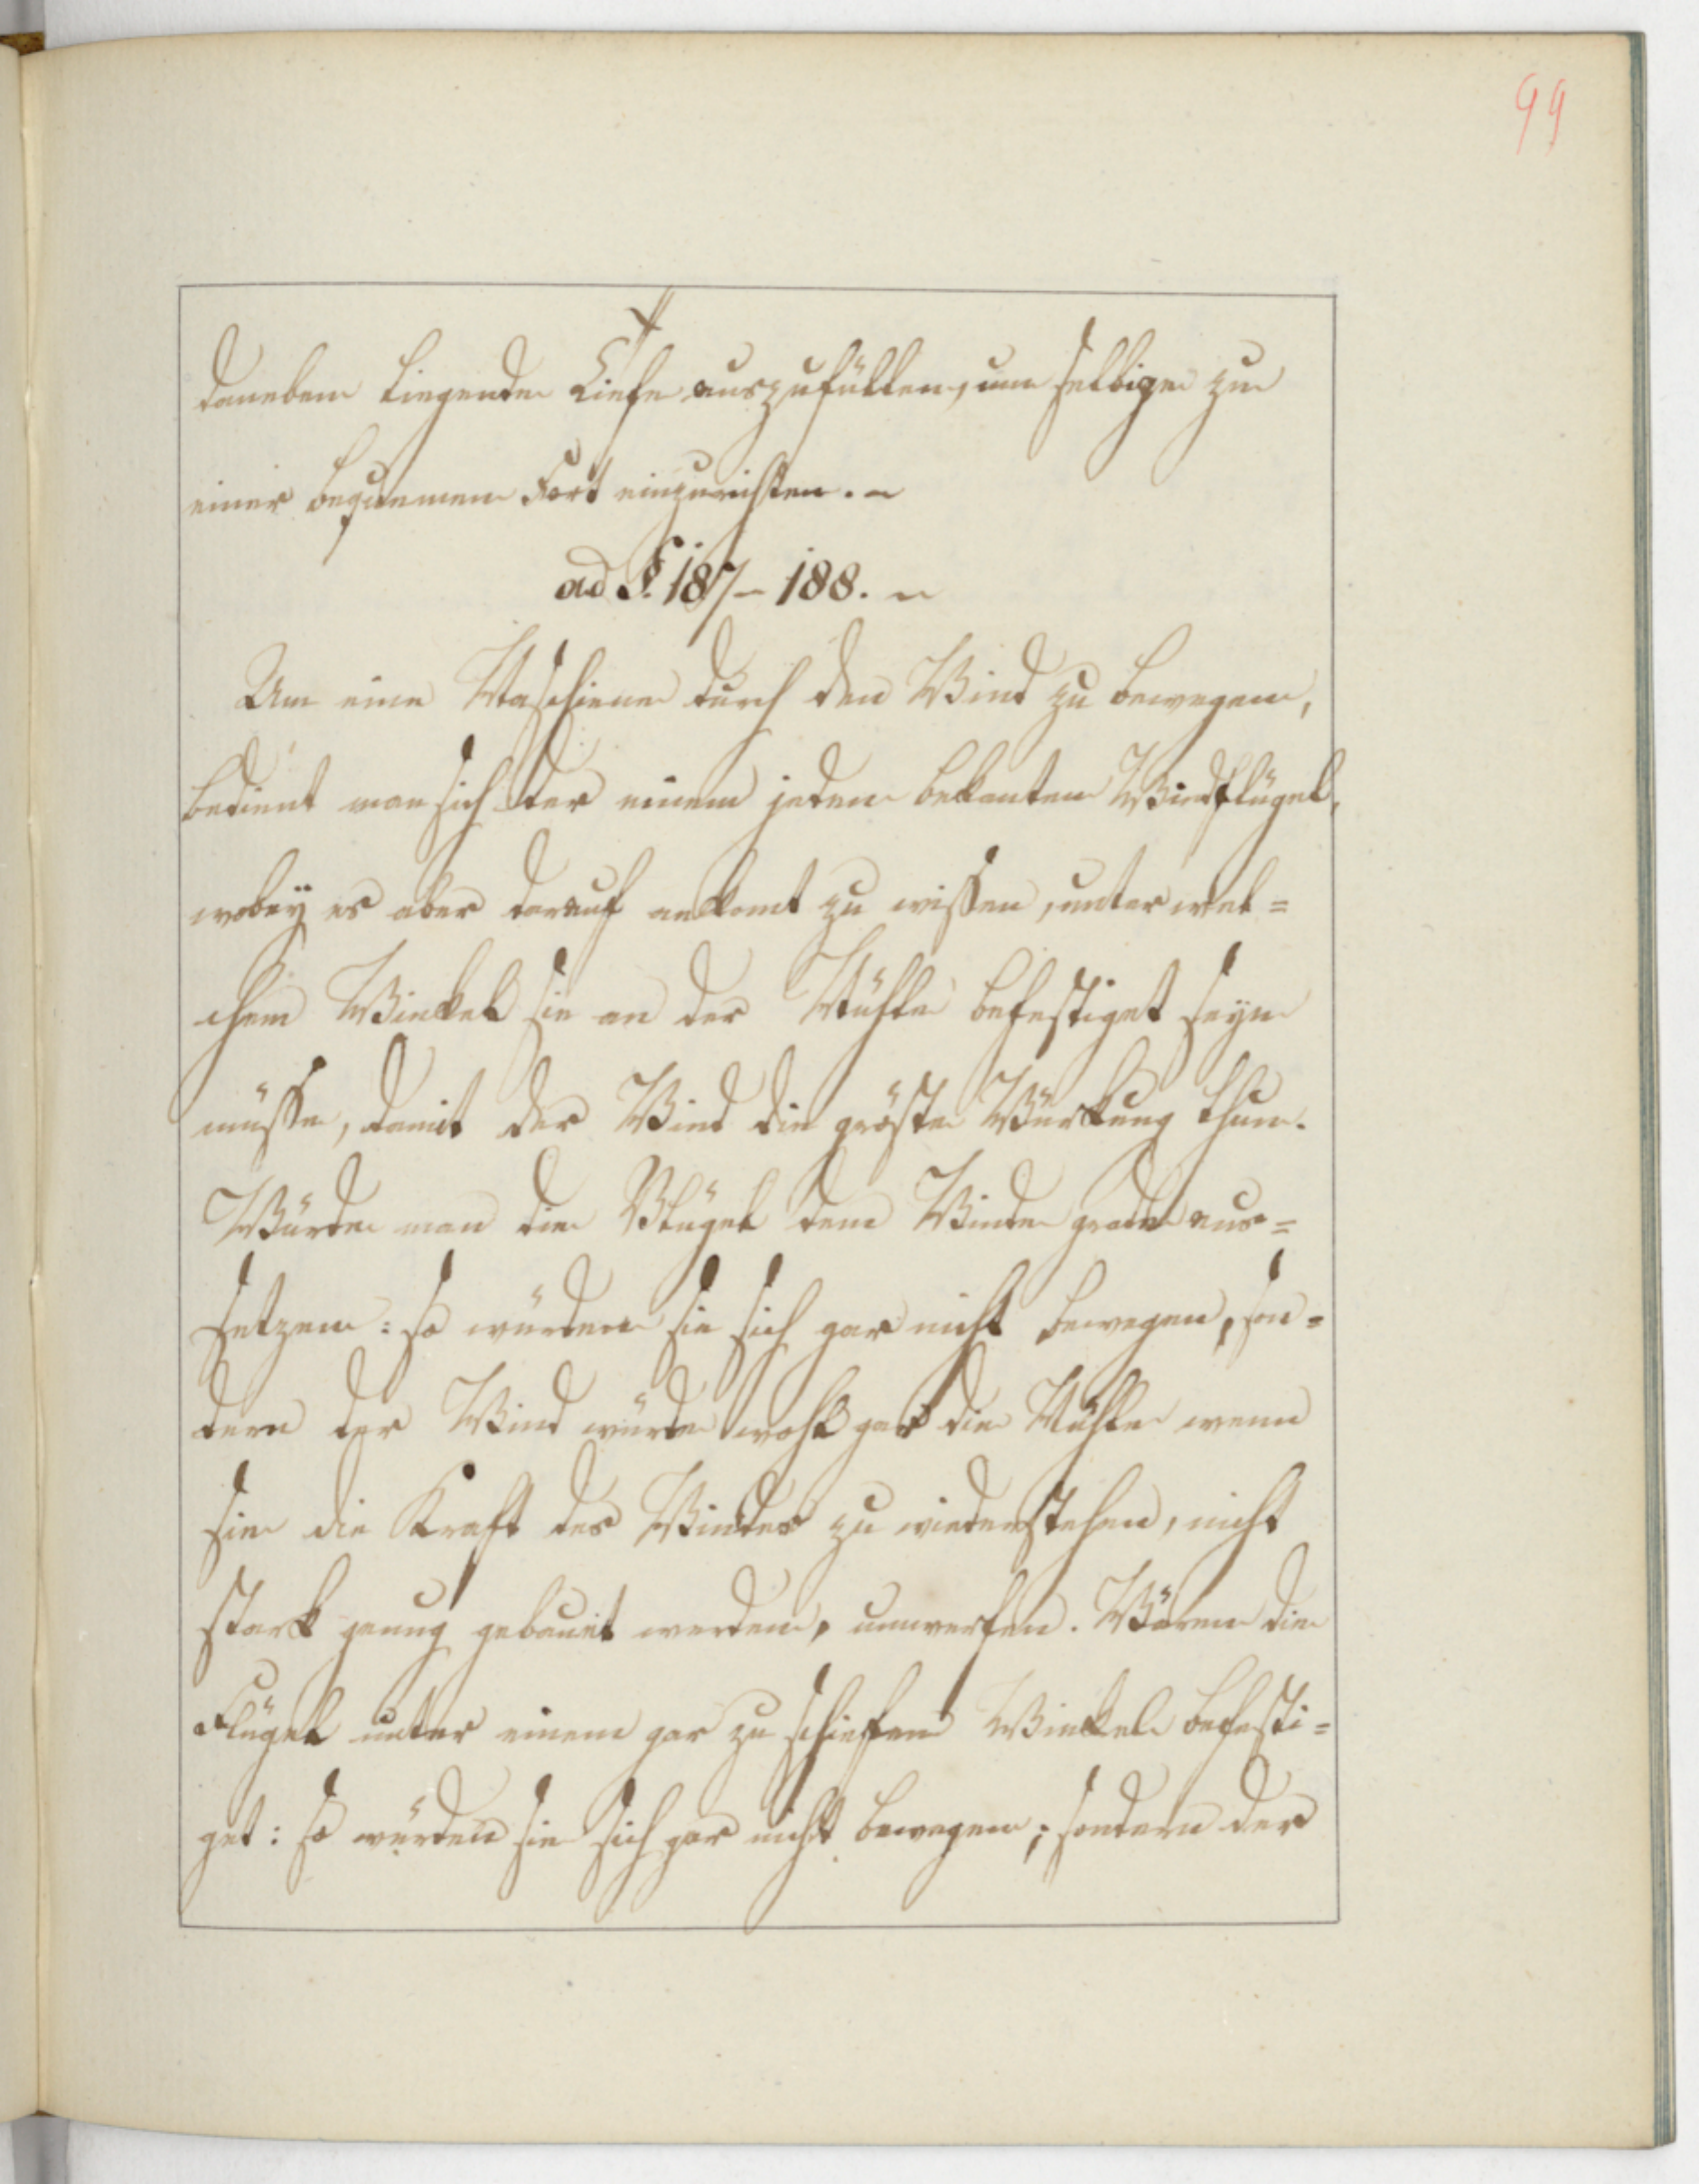 99
daneben liegende Tiefe auszufüllen, um selbige zu
einer bequemen Fort einzurichten. ~
ad §. 187 - 188. ~
Um eine Maschiene durch den Wind zu bewegen,
bedient man sich der einem jeden bekanten Windflügel,
wobeÿ es aber darauf ankomt zu wissen, unter wel=
chem Winkel sie an der Mühle befestiget seyn
müsse, damit der Wind die gröste Würkung thue.
Würde man die Flügel dem Winde grade aus=
setzen: so würden sie sich gar nicht bewegen, son=
dern der Wind würde wohl gar die Mühle wenn
sie die Kraft des Windes zu wiederstehen, nicht
stark genug gebauet werden, umwerfen. Wären die
Flügel unter einem gar zu schiefen Winkel befesti=
get: so würden sie sich gar nicht bewegen; sondern der